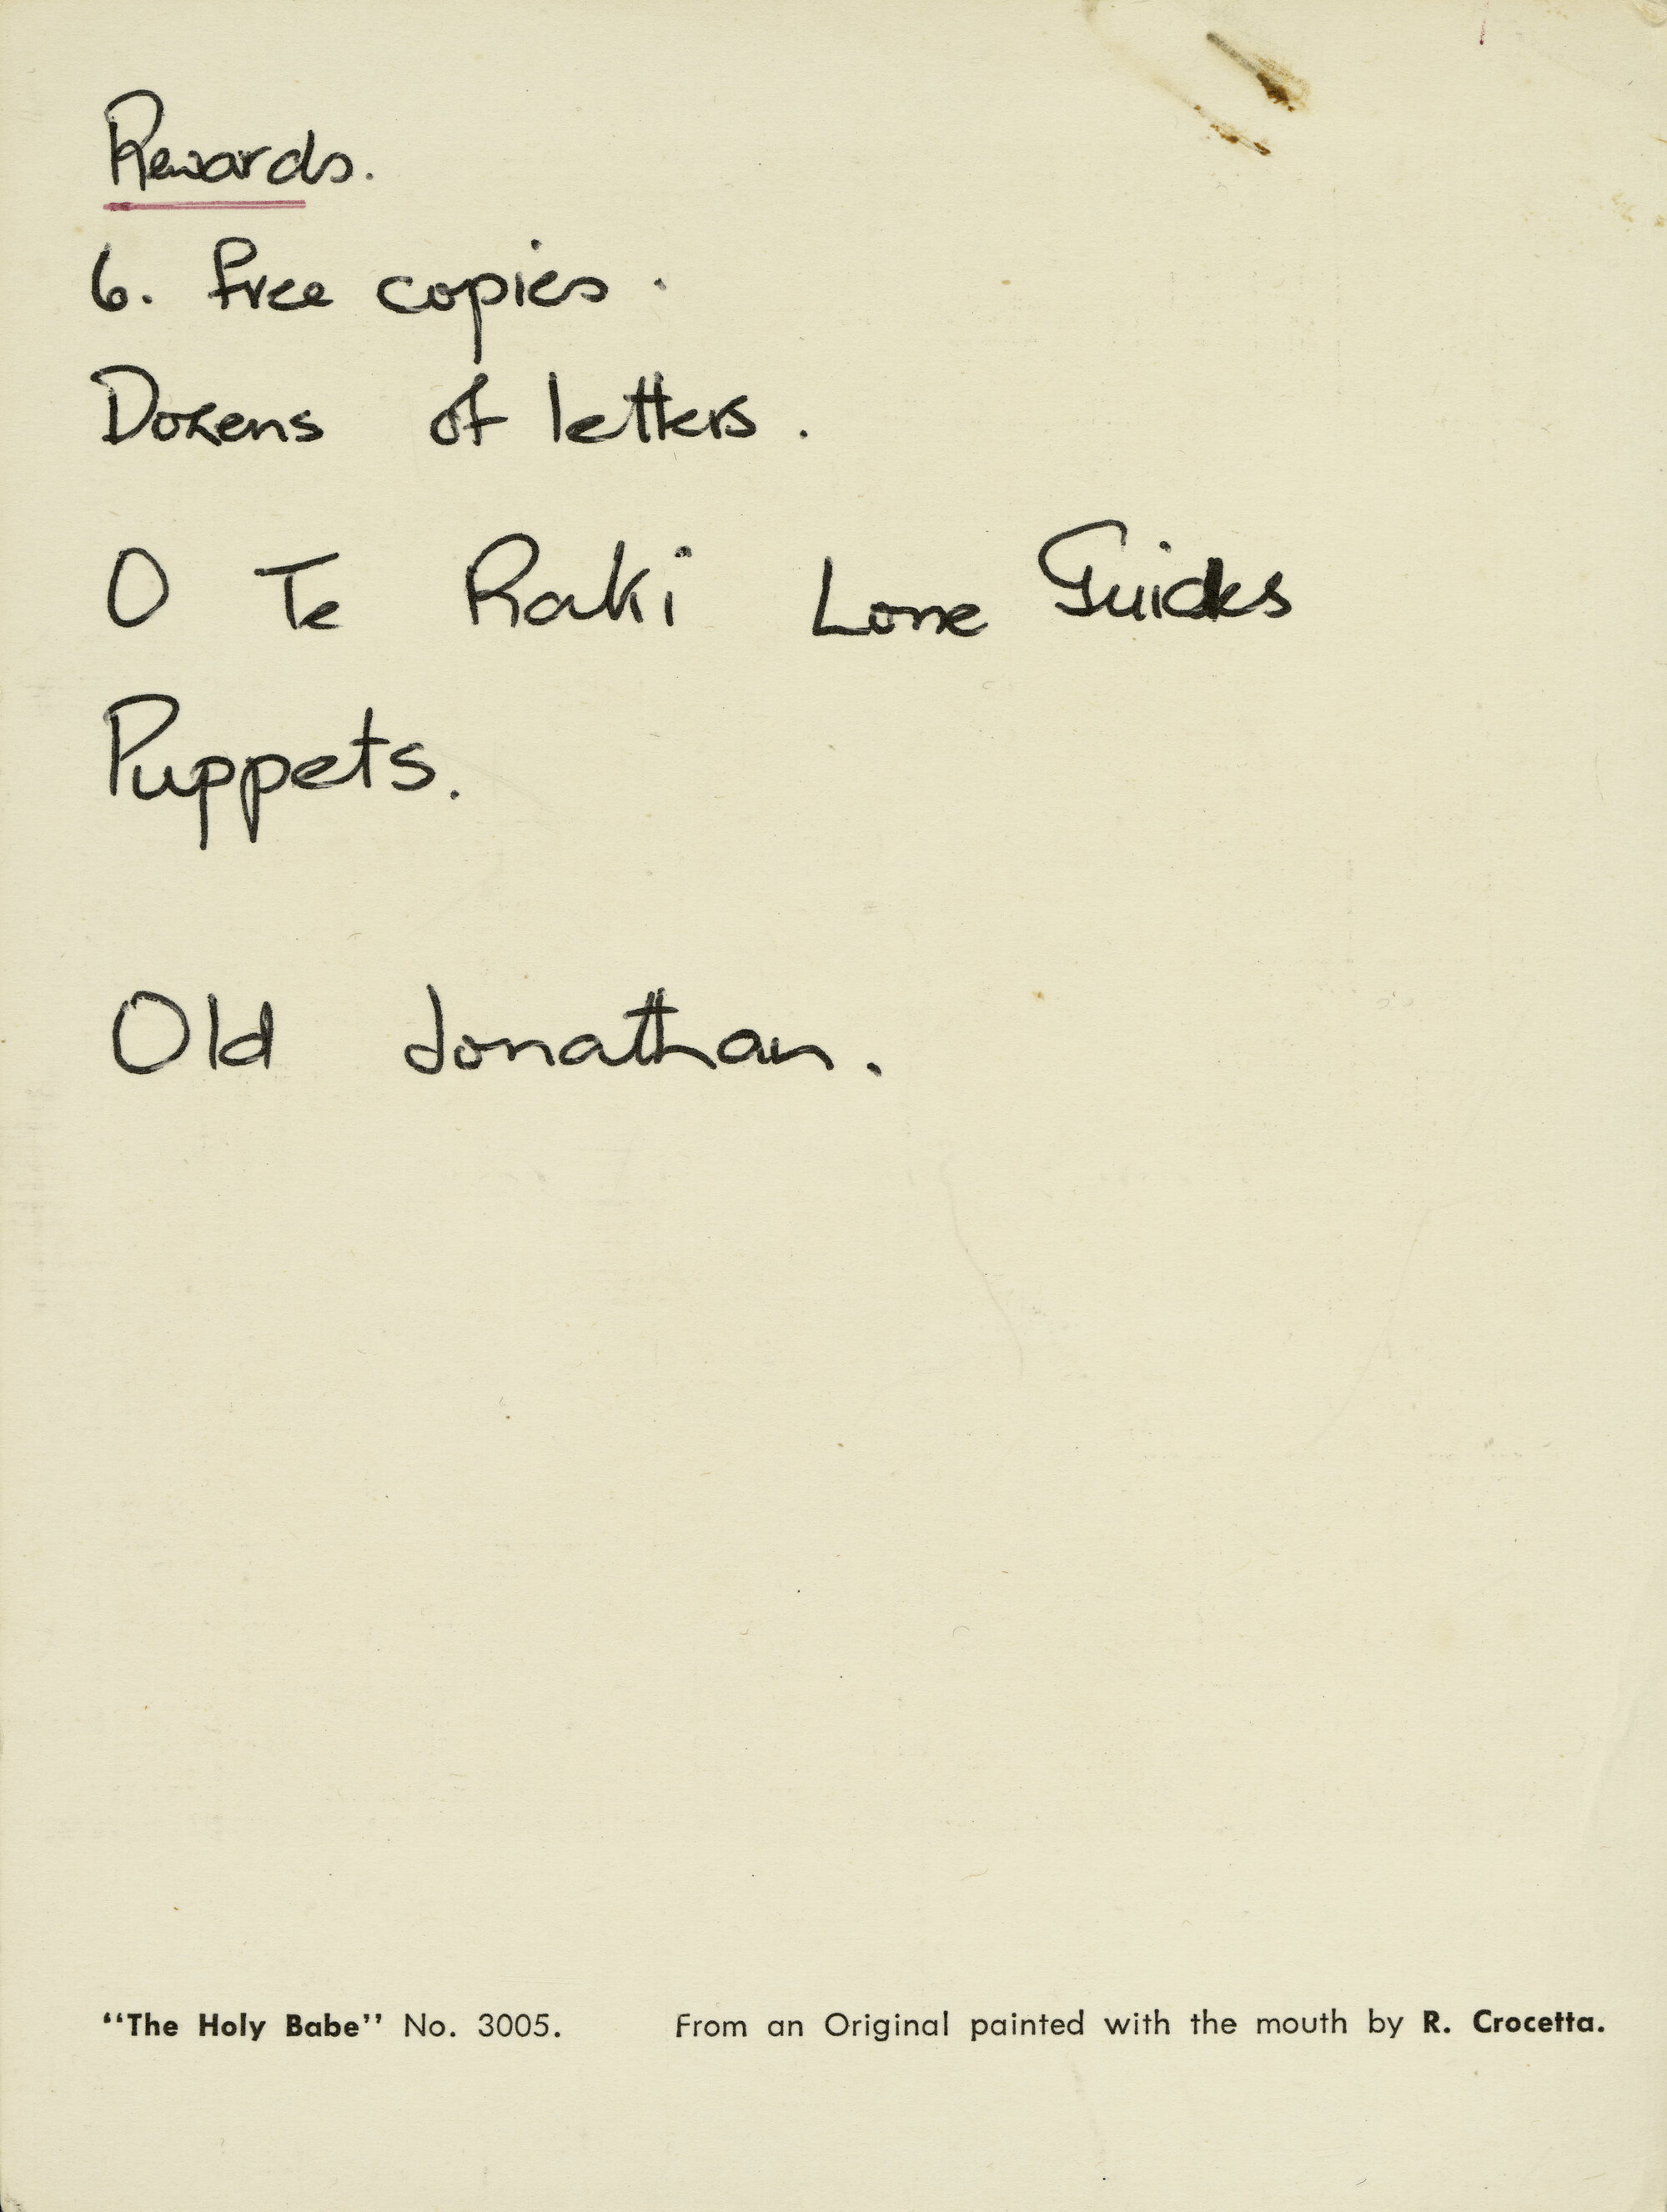 Rewards.
6. free copies.
Dozens of letters.
O Te Raki Lone Guides
Puppets.
Old Jonathan.
"The Holy Babe" No. 3005. From an Original painted with the mouth by R. Crocetta.